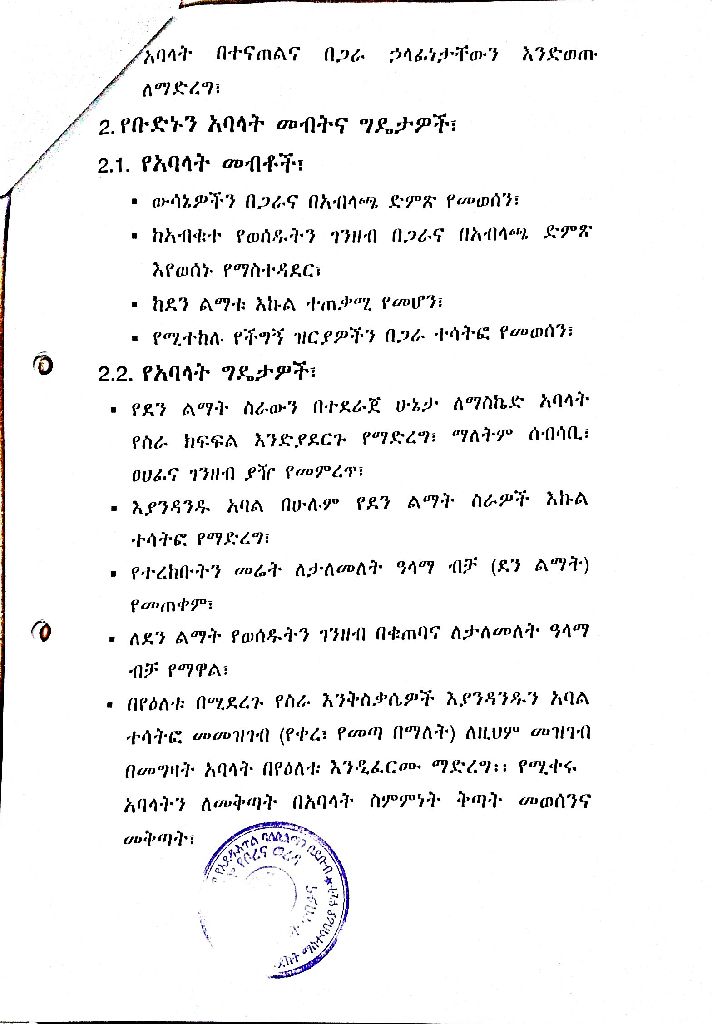 አባላት በተናጠልና በጋራ ኃላፊነታቸውን እንድወጡ
ለማድረግ፣
2. የቡድኑን አባላት መብትና ግዴታዎች፣
2.1. የአባላት መብቶች፣
▪ ውሳኔዎችን በጋራና በአብላጫ ድምጽ የመወሰን፣
▪ ከአብቁተ የወሰዱትን ገንዘብ በጋራና በአብላጫ ድምጽ
እየወሰኑ የማስተዳደር፣
▪ ከደን ልማቱ እኩል ተጠቃሚ የመሆን፣
▪ የሚተከሉ የችግኝ ዝርያዎችን በጋራ ተሳትፎ የመወሰን፣
2.2. የአባላት ግዴታዎች፣
▪ የደን ልማት ስራውን በተደራጀ ሁኔታ ለማስኬድ አባላት
የስራ ክፍፍል እንድያደርጉ የማድረግ፣ ማለትም ሰብሳቢ፣
ፀሀፊና ገንዘብ ያዥ የመምረጥ፣
▪ እያንዳንዱ አባል በሁሉም የደን ልማት ስራዎች እኩል
ተሳትፎ የማድረግ፣
▪ የተረከቡትን መሬት ለታለመለት ዓላማ ብቻ (ደን ልማት)
የመጠቀም፣
▪ ለደን ልማት የወሰዱትን ገንዘብ በቁጠባና ለታለመለት ዓላማ
ብቻ የማዋል፣
▪ በየዕለቱ በሚደረጉ የስራ እንቅስቃሴዎች እያንዳንዱን አባል
ተሳትፎ መመዝገብ (የቀረ፣ የመጣ በማለት) ለዚህም መዝገብ
በመግዛት አባላት በየዕለቱ እንዲፈርሙ ማድረግ፡፡ የሚቀሩ
አባላትን ለመቅጣት በአባላት ስምምነት ቅጣት መወሰንና
መቅጣት፣